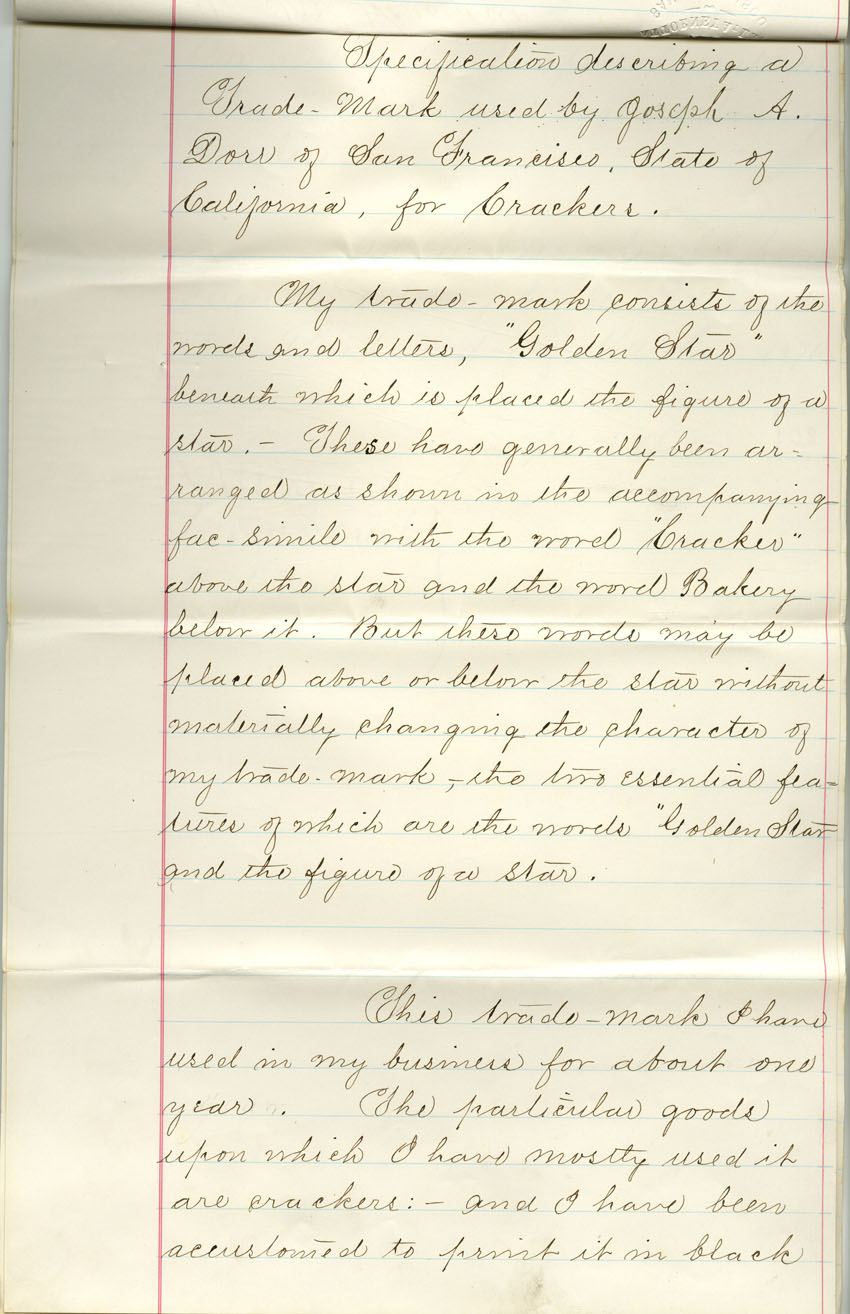 Specification describing a
Trade-Mark used by Joseph A.
Dorr of San Francisco, State of
California, for Crackers.
My trade-mark consists of the
words and letters, "Golden Star"
beneath which is placed the figure of a
star.- These have generally been ar-
ranged as shown in the accompanying
fac-simile with the word "Cracker"
above the star and the word Bakery
below it. But these words may be
placed above or below the star without
materially changing the character of
my trade-mark,-the two essential fea-
tures of which are the words "Golden Star
and the figure of a star.
This trade-mark I have
used in my business for about one
year. The particular goods
upon which I have mostly used it
are crackers:- and I have been
accustomed to print it in black